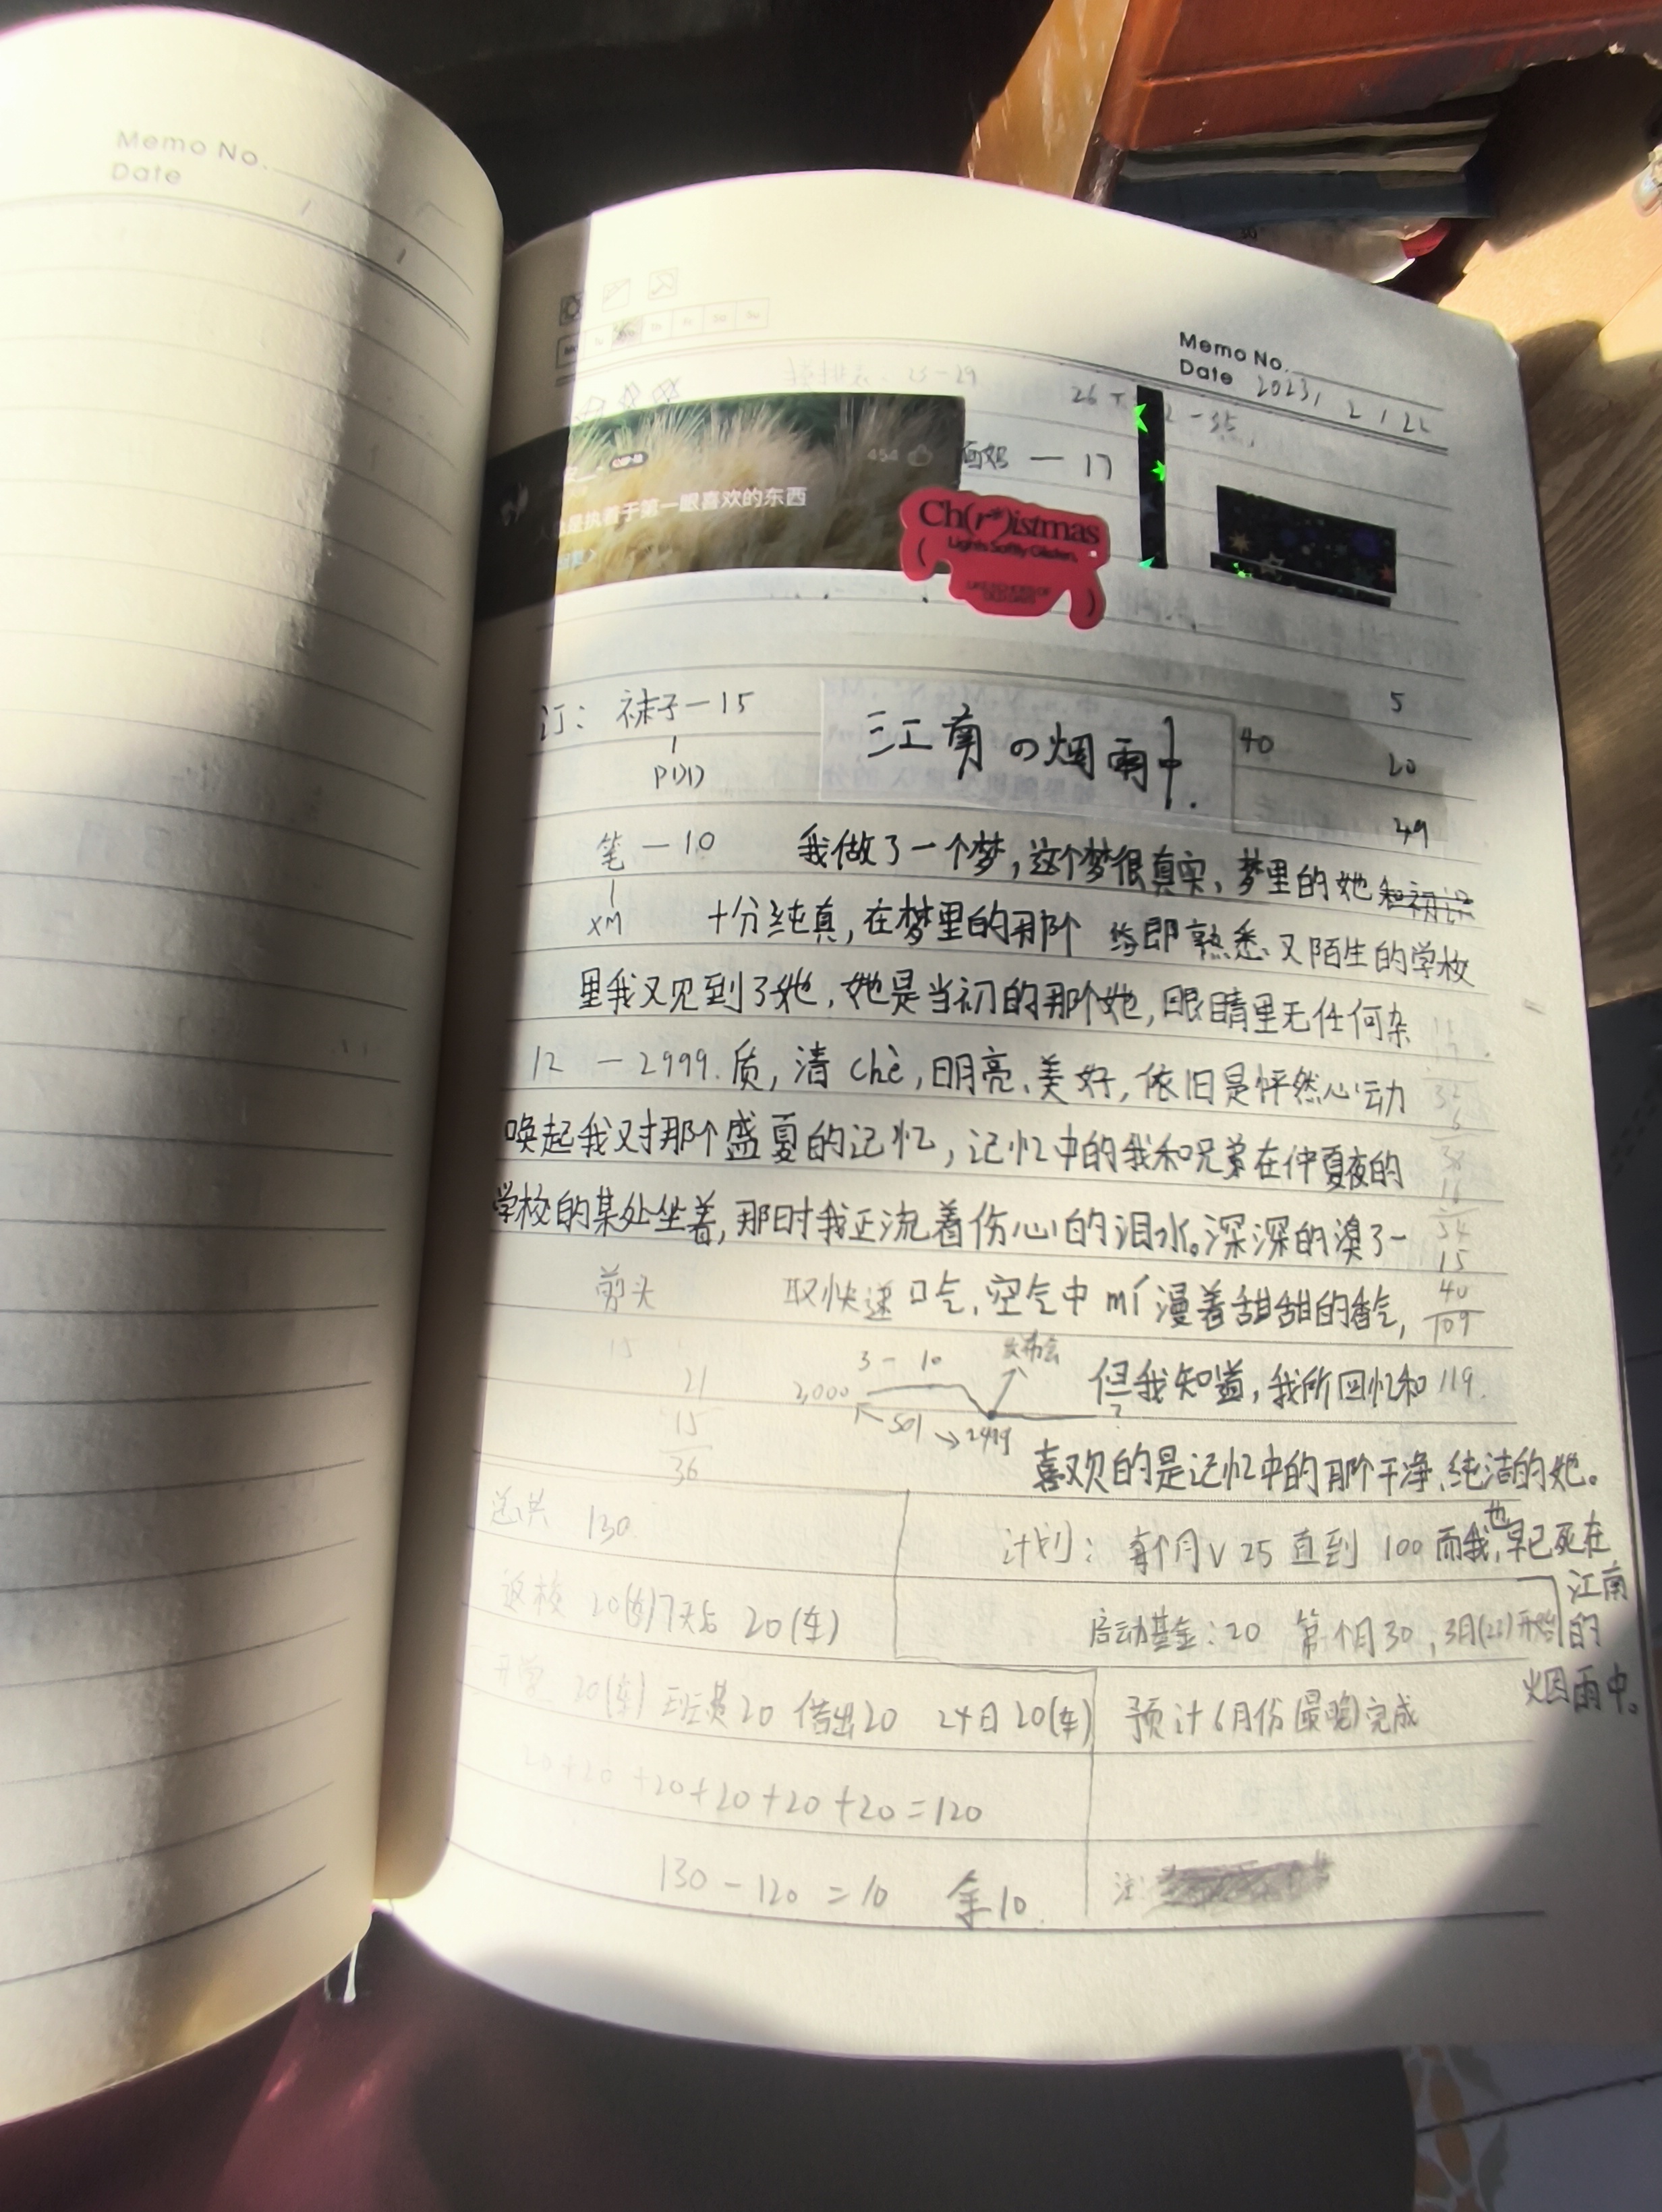 Memo No.
Date
Memo No.
Date 2023, 2, 22
23-29
26
2-35,
454
总是执着于第一眼喜欢的东西
妈 — 17
Ch(r*)istmas
Lights Softly Glisten,
订: 袜子 — 15
PDD
江南の烟雨中.
40
5
20
49
笔 — 10
XM
我做了一个梦,这个梦很真实、梦里的她和初识
十分纯真,在梦里的那个 即熟悉、又陌生的学校
里我又见到了她,她是当初的那个她,眼睛里无任何杂
12 — 2999.
质,清chè,明亮、美好,依旧是怦然心动
唤起我对那个盛夏的记忆,记忆中的我和兄弟在仲夏夜的
学校的某处坐着,那时我正流着伤心的泪水。深深的溴了一
剪头 取快递
口气、空气中mí漫着甜甜的香气,
32
38
16
54
15
40
109
119.
15
21
15
36
3 — 10
发布会
3,000
501
2499
?
但我知道,我所回忆和
喜欢的是记忆中的那个干净、纯洁的她。
而我也,早已死在
江南
的
烟雨中。
送洪 130
计划: 每个月V 25 直到 100
返校 20(车) 7天后 20(车)
启动基金: 20 第1个月30, 3月(22)开始
开学 20(车) 班费20 借出20 24日20(车)
预计6月份(最晚)完成
20+20+20+20+20+20=120
130-120=10 余10.
注: